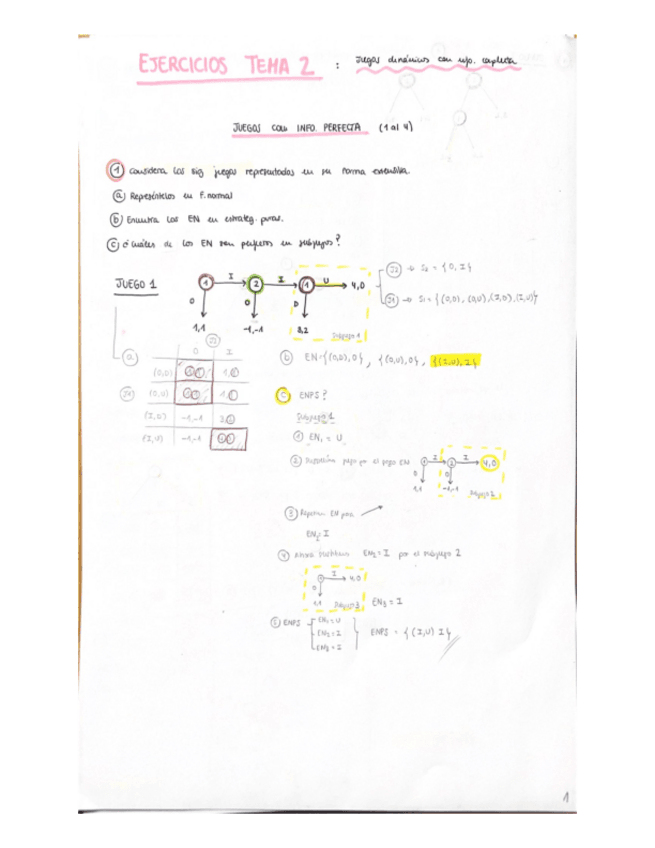 EJERCICIOS TEMA 2 : Juegos dinámicos con info. completa
JUEGOS CON INFO. PERFECTA (1 al 4)
1 Considera los sig. juegos representados en su forma extensiva.
a Represéntelos en F. normal
b Encuentra los EN en estrateg. puras.
c ¿Cuáles de los EN son perfectos en subjuegos?
JUEGO 1
1 I 2 I 1 U 4,0
O O D
1,1 -1,-1 3,2
Subjuego 1
J2 → S2 = {O, I}
J1 → S1 = {(O,D), (O,U), (I,D), (I,U)}
a
J2
O I
J1
(O,D)
(O,U)
(I,D) -1,-1
(I,U) -1,-1
b EN={(O,D),O}, {(O,U),O}, {(I,U),I}
c ENPS?
Subjuego 1
1 EN1 = U
2 Sustituimos pago por el pago EN
1 I 2 I 4,0
O O
1,1 -1,-1
Subjuego 2
3 Repetimos EN para
EN2=I
4 Ahora sustituimos EN2=I por el subjuego 2
I 4,0
O
1,1 Subjuego 3 EN3 = I
5 ENPS
EN1=U
EN2=I
EN3=I
ENPS = {(I,U) I}
1